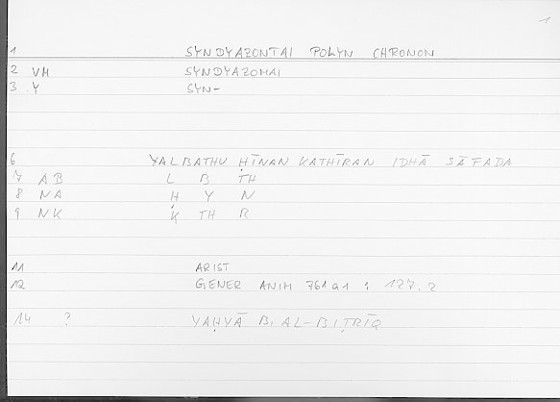 1
1 SYNDYAZONTAI POLYN CHRONON
2 VM SYNDYAZOMAI
3 Y SYN-
6 YALBATHU ḤĪNAN KATHĪRAN IDHĀ SĀFADA
7 AB L B TH
8 NA Ḥ Y N
9 NK K TH R
11 ARIST
12 GENER ANIM 761a1 : 127.2
14 ? YAḤYĀ B. AL-BIṬRĪQ